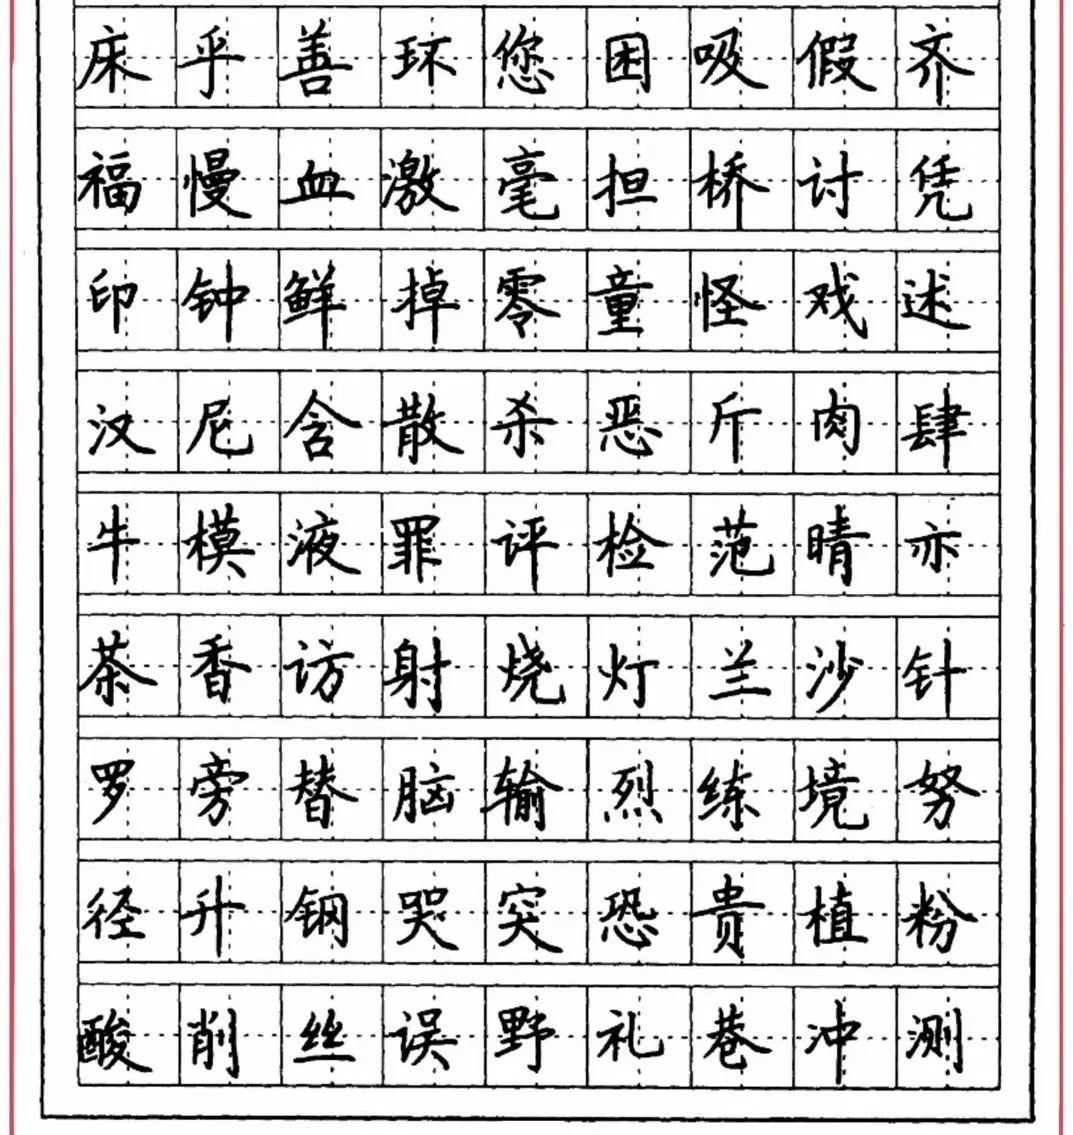 床乎善环您困吸假齐
福慢血激毫担桥讨凭
印钟鲜掉零童怪戏述
汉尼含散杀恶斤肉肆
牛模液罪评检范晴亦
茶香访射烧灯兰沙针
罗旁替脑输烈练境努
径升钢哭突恐贵植粉
酸削丝误野礼巷冲测